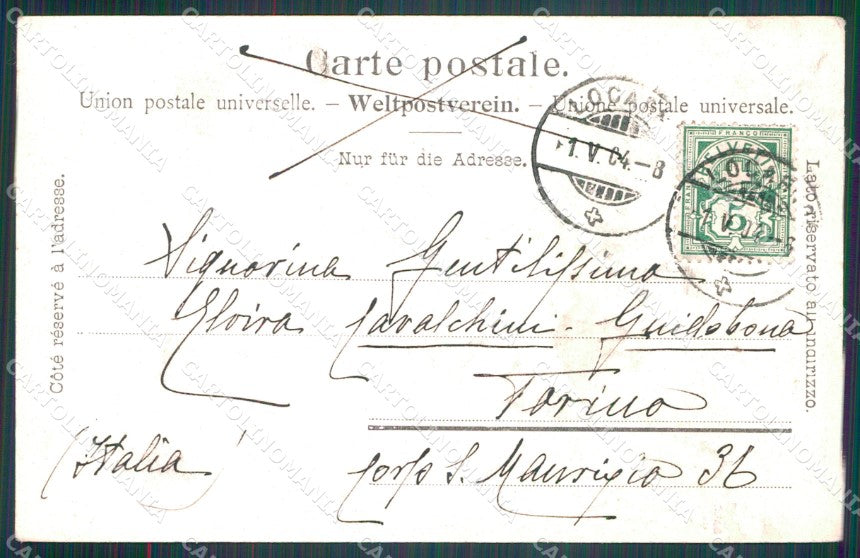 Carte postale.
Union postale universelle. – Weltpostverein. – Unione postale universale.
Nur für die Adresse.
Côté réservé à l'adresse.
Lato riservato all'indirizzo.
1. V. 04. – 8
FRANCO
HELVETIA
5
Signorina Gentilissima
Elvira Cavalchini - Guidobona
Torino
(Italia)
Corso S. Maurizio 36
CARTOLINOMANIA